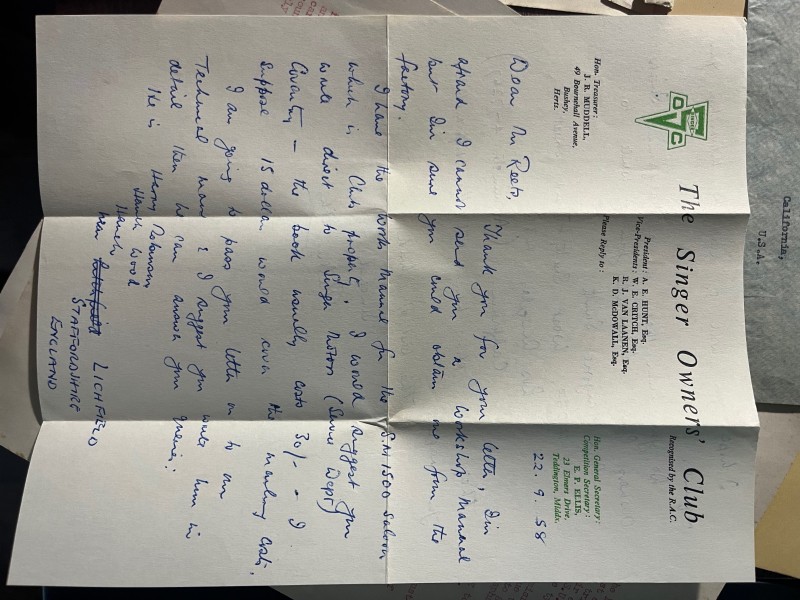 The Singer Owners' Club
Recognized by the R.A.C.
S
O C
President: A. E. HUNT, Esq.
Vice-Presidents: W. E. CRITCH, Esq.
R. J. VAN LAANEN, Esq.
K. D. McDOWALL, Esq.
Please Reply to:
Hon. Treasurer:
J. R. MUDDELL,
49 Bournehall Avenue,
Bushey,
Herts.
Hon. General Secretary:
Competition Secretary:
E. P. ELLIS,
23 Elmers Drive,
Teddington, Middx.
22. 9. 58
Dear Mr Reets,
Thank you for your letter, I'm
afraid I cannot send you a workshop manual
but I'm sure you could obtain one from the
factory.
I have the works manual for the S.M.1500 saloon
which is Club property. I would suggest you
write direct to Singer Motors (Service Dept)
Coventry – the book usually costs 30/- – I
suppose 15 dollars would cover the mailing costs.
I am going to pass your letter on to our
Technical man & I suggest you write him in
detail then he can answer your queries:
He is Harry Robinson
Hanch Wood
Hanch
near LICHFIELD
STAFFORDSHIRE
ENGLAND
California,
U.S.A.